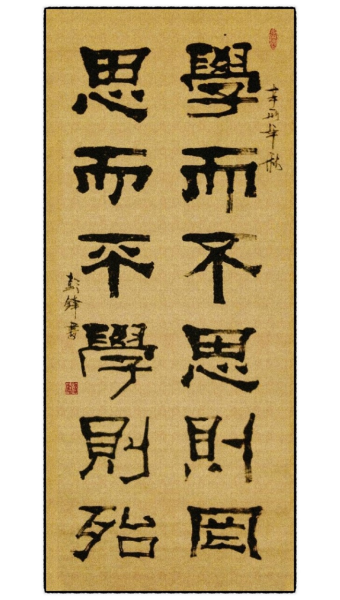 辛卯年秋
學而不思則罔
思而不學則殆
彭鋒書